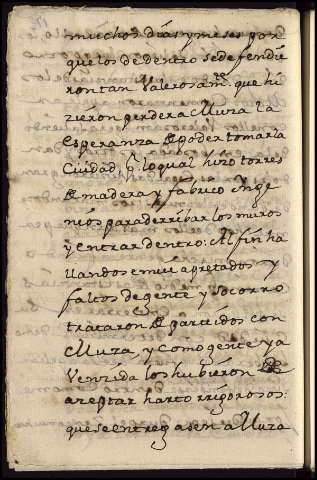 muchos dias y meses por
que los de dentro se defendie
ron tan Valerosam.te que hi
zieron perder a Muza la
esperanza de poder tomar la
Ciudad por lo qual hizo torres
de madera y fabrico Inge
nios para derribar los muros
y entrar dentro: Al fin ha
llandose muy apretados y
faltos de gente y socorro
trataron de partidos con
Muza, y como gente ya
Venzida los hubieron de
azeptar harto rrigorosos:
que se entregasen a Muza